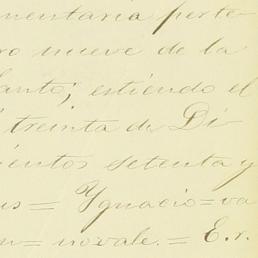 mentaria perte-
ro nueve de la
lanto; estiendo el
treinta de Di
cientos setenta y
us = Ygnacio = va
= no vale. = E. r.